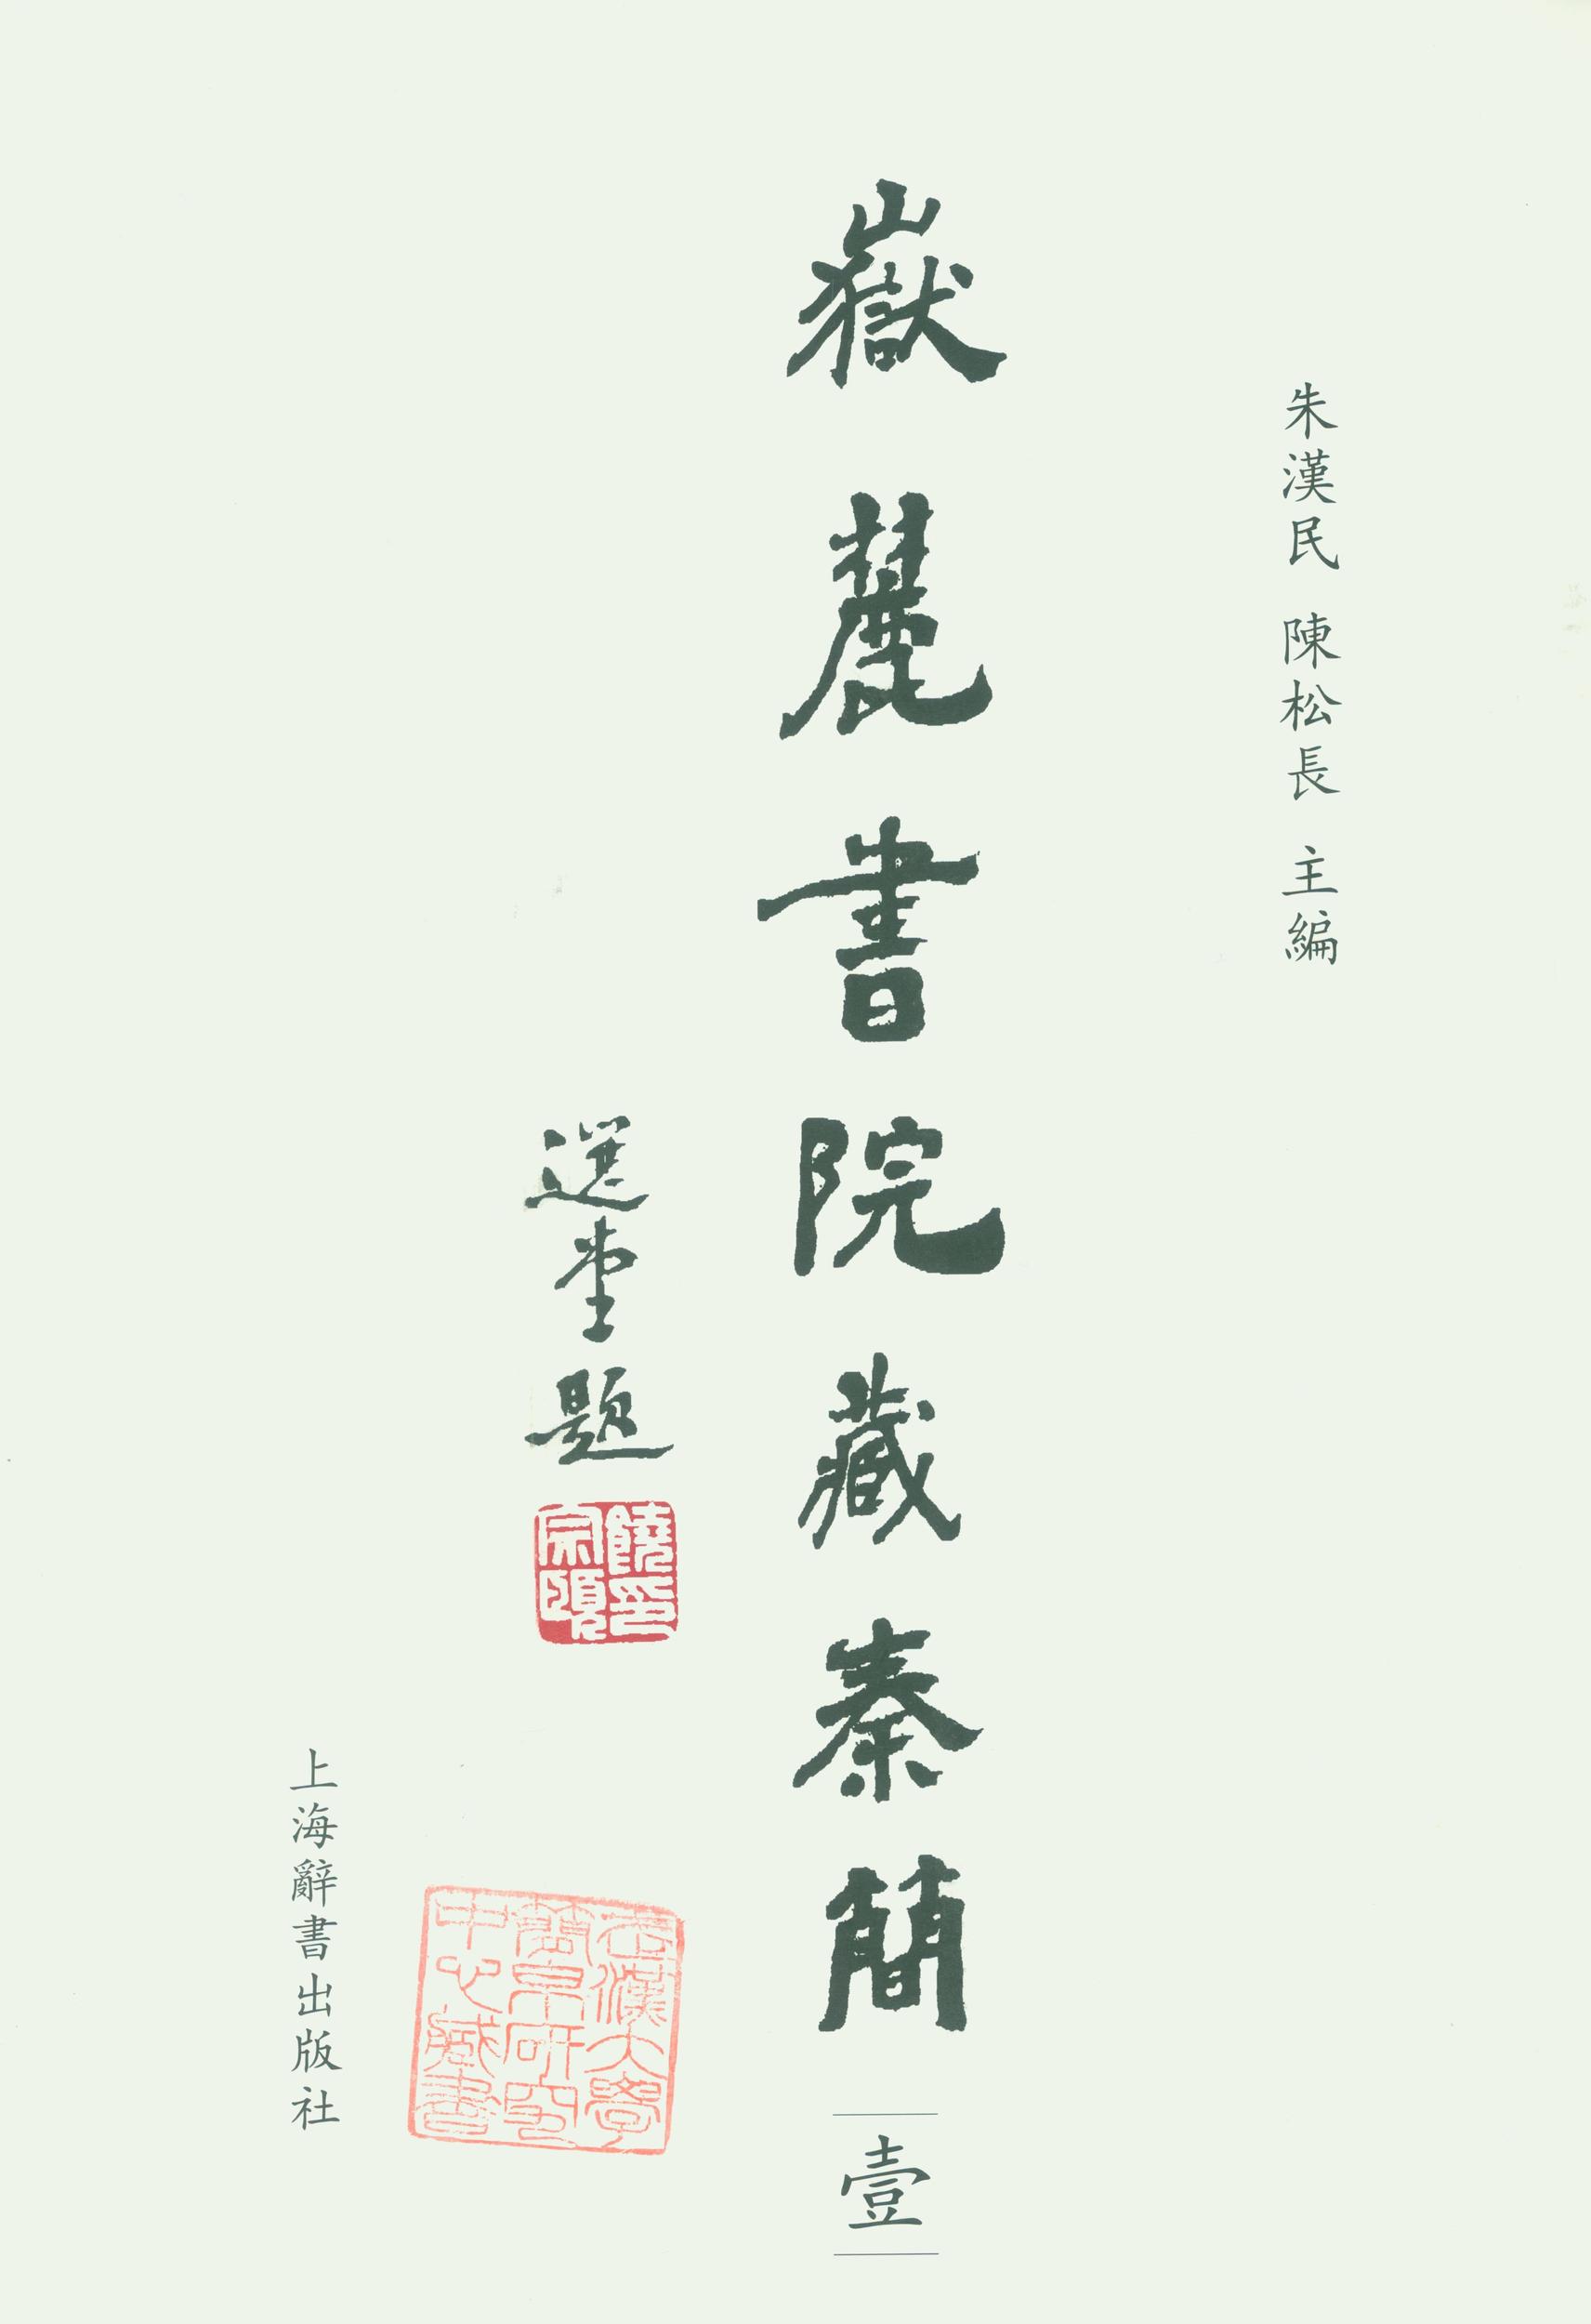 朱漢民 陳松長 主編
嶽麓書院藏秦簡
壹
選堂題
饒宗頤印
武漢大學簡帛研究中心藏書
上海辭書出版社